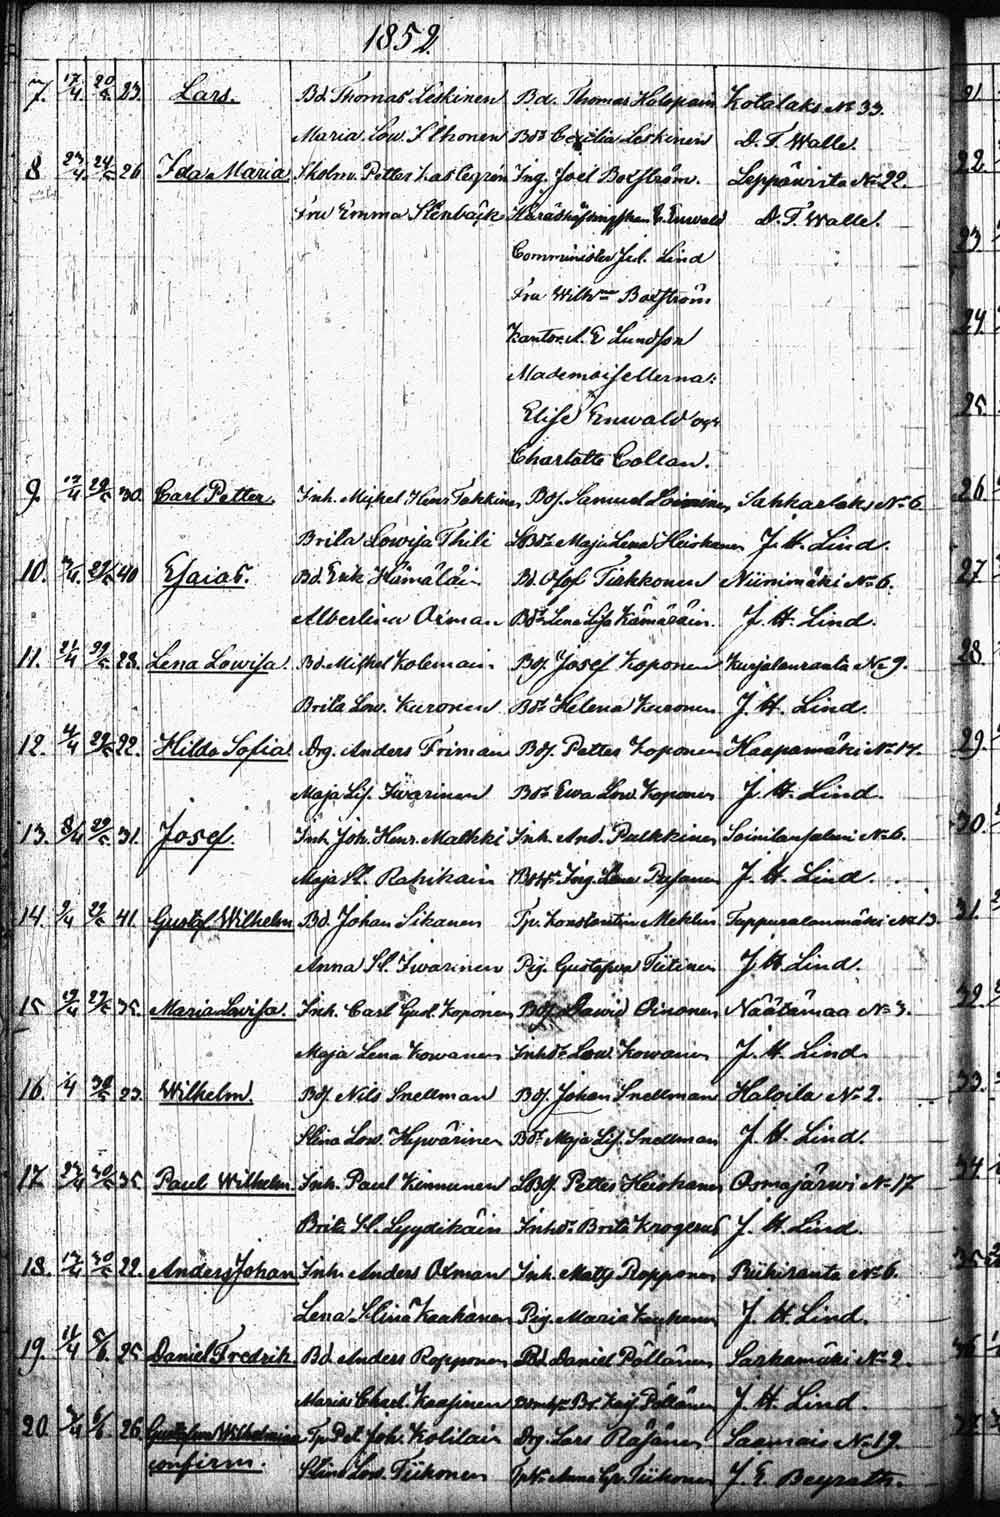 1852.
7. 17/4 20/5 23. Lars. Bd. Thomas Leskinen Bd. Thomas Halopain Kotalaks No 33.
Maria Low. Ilhonen Bdr Cecilia Leskinen D. F. Walle.
8 23/4 24/5 26 Ida Maria Skolm. Petter Lagergrén Ing. Joel Boxström. Leppäwirta No 22.
Fru Emma Stenbäck Enwald D. F. Walle.
Comminister Lind
Fru Wilhma Boxström
Kantor A. E Lundson
Mademoisellerna:
Elise Enwald och
Charlotte Collan.
9. 29/5 30. Carl Petter. Inh. Michel Henr Takkinen Bdf. Samuel Loininen Sahkarlaks No 6
Brita Lowisa Thili LBdr Maja Lena Heiskanen J. H. Lind.
10. 29/5 40 Esaias. Bd. Erik Hämäläin Bd. Olof Tirkkonen Niinimäki No 6.
Albertina Oxman Bdr Lena Lisa Kämäräin. J. H. Lind.
11. 29/5 28. Lena Lowisa. Bd. Michel Kolemain Bdf. Josef Koponen Kurjalanranta No 9.
Brita Low. Kuronen Bdr Helena Kuronen J. H. Lind.
12. 4/4 29/5 22. Hilda Sofia. Drg. Anders Friman Bdf. Petter Koponen Haapamäki No 17.
Maja Lis. Iwarinen Bdr Ewa Low. Koponen J. H. Lind.
13. 8/4 29/5 31. Josef. Inh. Joh. Henr. Malkki Inh. And. Pulkkinen Soinilansalmi No 6.
Maja St. Rahikain Ing. Lena J. H. Lind.
14. 9/4 29/5 41. Gustaf Wilhelm Bd. Johan Sikanen Tp. Konstantin Meklin Tappuralanmäki No 13.
Anna St. Iwarinen Pig. Gustafwa Tiitinen J. H. Lind.
15 19/4 29/5 35. Maria Lovisa. Inh. Carl Gust. Koponen Bdf. Dawid Oinonen Näätämaa No 3.
Maja Lena Kowanen Inhdr Low. Kowanen J. H. Lind
16. 1/4 30/5 23. Wilhelm. Bdf. Nils Snellman Bdf. Johan Snellman Haloila No 2.
Stina Low. Hywärinen Bdr Maja Lis. Snellman J. H. Lind.
17. 23/4 30/5 35 Paul Wilhelm. Inh. Paul Kinnunen LBdf. Petter Heiskanen Osmajärwi No 17
Brita St. Lyydikäin Inhdr Brita Krogerus J. H. Lind.
18. 13/4 30/5 22. Anders Johan Inh. Anders Oxman Inh. Matts Ropponen Riihiranta No 6.
Lena Stina Kauhanen Pig. Maria Kauhanen J. H. Lind.
19. 11/4 5/6. 25 Daniel Fredrik Bd. Anders Ropponen Bd. Daniel Pöllänen Sarkamäki No 2.
Maria Charl. Kaasinen Kaj. Pöllänen J. H. Lind.
20. 6/6. 26. Gustafwa Wilhelmina Tp. Pet. Joh. Kolilain Drg. Lars Räsänen Saamais No 19.
confirm. Stina Low. Tiihonen Anna Tiihonen J. E. Beyrath.
21.
22.
23
24.
25
26
27
28.
29.
30.
31.
32.
33.
34.
35
36